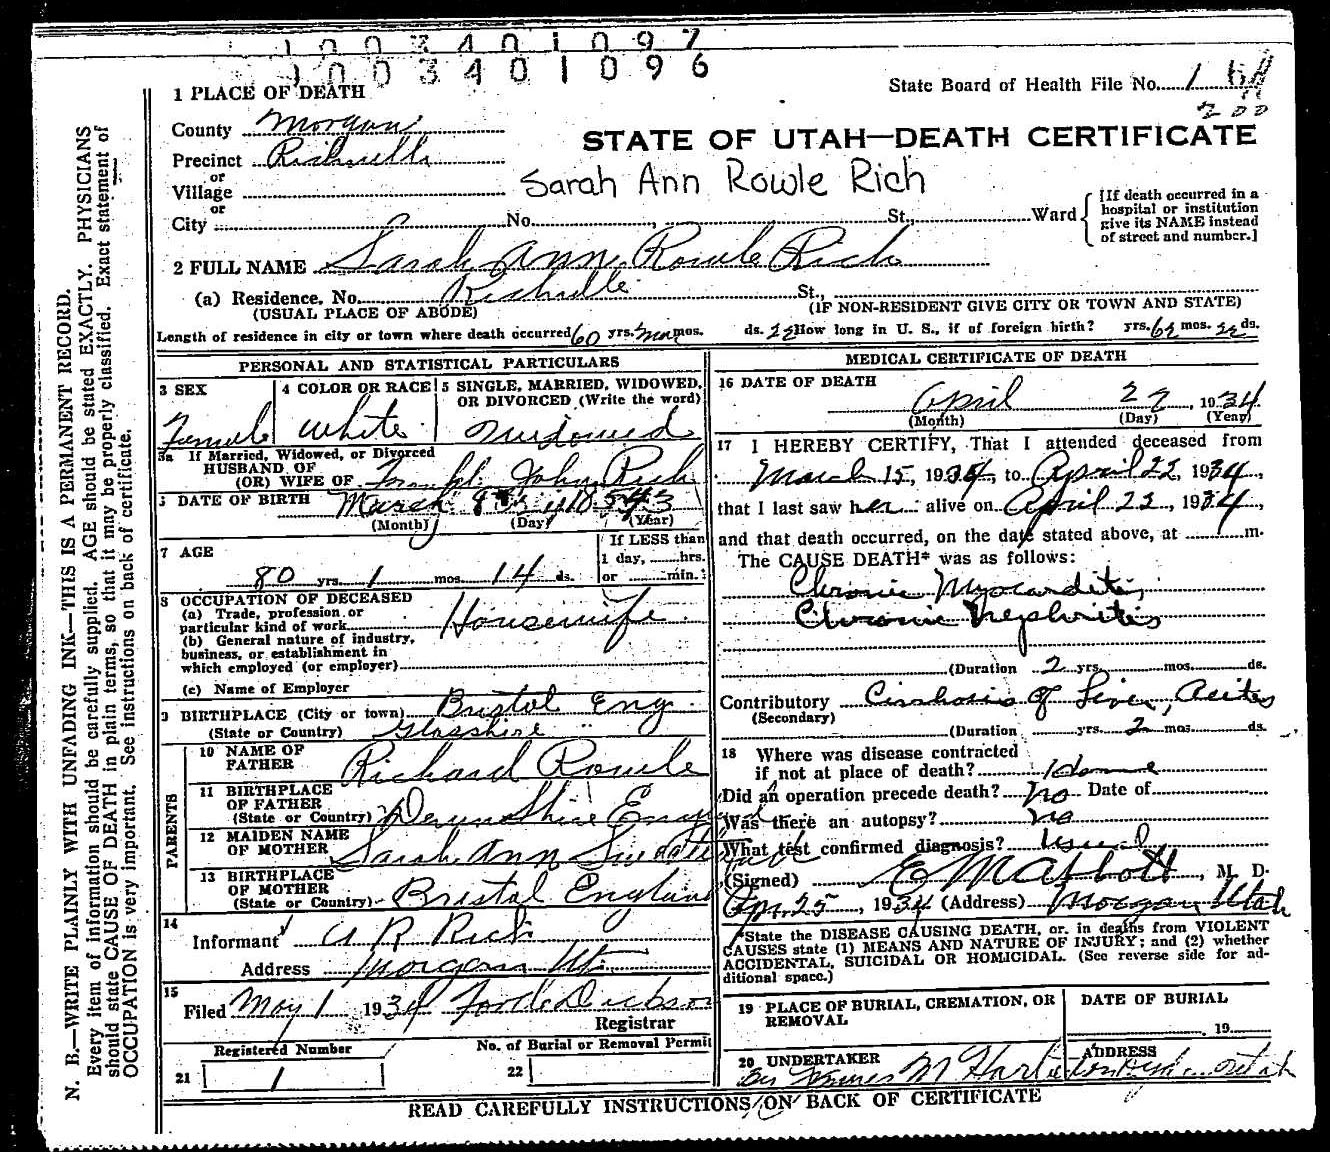 1003401097
1003401096
State Board of Health File No.
200
1 PLACE OF DEATH
County Morgan
STATE OF UTAH—DEATH CERTIFICATE
Precinct Richville
or
Village
Sarah Ann Rowle Rich
or
City No. St., Ward
[If death occurred in a hospital or institution give its NAME instead of street and number.]
2 FULL NAME Sarah Ann Rowle Rich
(a) Residence, No. Richville St.,
(USUAL PLACE OF ABODE) (IF NON-RESIDENT GIVE CITY OR TOWN AND STATE)
Length of residence in city or town where death occurred 60 yrs. mos. ds. 22 How long in U. S., if of foreign birth? yrs. 62 mos. 22 ds.
PERSONAL AND STATISTICAL PARTICULARS
3 SEX
Female
4 COLOR OR RACE
White
5 SINGLE, MARRIED, WIDOWED, OR DIVORCED (Write the word)
Widowed
3a If Married, Widowed, or Divorced
HUSBAND OF
(OR) WIFE OF John Rich
DATE OF BIRTH March
(Month) (Day) (Year)
7 AGE
80 yrs. 1 mos. 14 ds.
If LESS than
1 day, hrs.
or min.
8 OCCUPATION OF DECEASED
(a) Trade, profession, or
particular kind of work Housewife
(b) General nature of industry,
business, or establishment in
which employed (or employer)
(c) Name of Employer
9 BIRTHPLACE (City or town) Bristol Eng
(State or Country) Glosshire
PARENTS
10 NAME OF FATHER Richard Rowle
11 BIRTHPLACE OF FATHER
(State or Country) England
12 MAIDEN NAME OF MOTHER Sarah Ann
13 BIRTHPLACE OF MOTHER
(State or Country) Bristol England
14
Informant A R Rich
Address Morgan Ut
15
Filed May 1 1934 Dickson
Registrar
Registered Number
21 1
No. of Burial or Removal Permit
22
MEDICAL CERTIFICATE OF DEATH
16 DATE OF DEATH
April 22, 1934
(Month) (Day) (Year)
17 I HEREBY CERTIFY, That I attended deceased from
March 15, 1934, to April 22, 1934,
that I last saw her alive on April 22, 1934,
and that death occurred, on the date stated above, at m.
The CAUSE DEATH* was as follows:
Chronic Myocarditis
Chronic Nephritis
(Duration 2 yrs. mos. ds.
Contributory Cirrhosis of Liver, Acites
(Secondary)
(Duration yrs. 2 mos. ds.
18 Where was disease contracted
if not at place of death? Home
Did an operation precede death? No Date of
Was there an autopsy? No
What test confirmed diagnosis? Usual
(Signed) E M Abbott, M. D.
Apr. 25, 1934 (Address) Morgan Utah
*State the DISEASE CAUSING DEATH, or, in deaths from VIOLENT
CAUSES state (1) MEANS AND NATURE OF INJURY; and (2) whether
ACCIDENTAL, SUICIDAL OR HOMICIDAL. (See reverse side for ad-
ditional space.)
19 PLACE OF BURIAL, CREMATION, OR REMOVAL
DATE OF BURIAL
, 19
20 UNDERTAKER
ADDRESS
Utah
READ CAREFULLY INSTRUCTIONS ON BACK OF CERTIFICATE
N. B.—WRITE PLAINLY WITH UNFADING INK—THIS IS A PERMANENT RECORD.
Every item of information should be carefully supplied. AGE should be stated EXACTLY. PHYSICIANS
should state CAUSE OF DEATH in plain terms, so that it may be properly classified. Exact statement of
OCCUPATION is very important. See instructions on back of certificate.